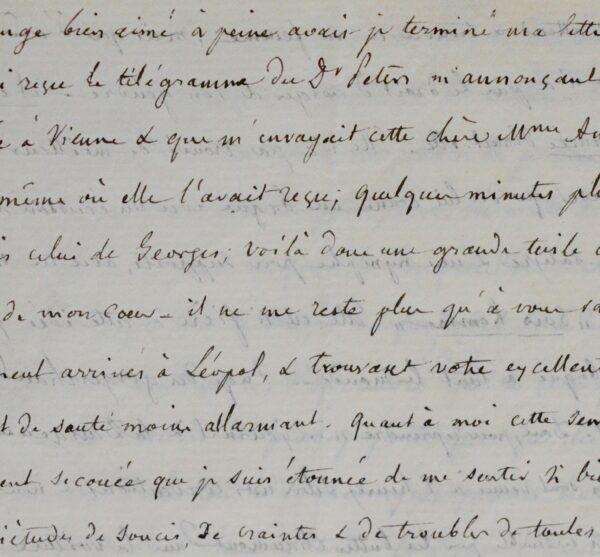 ange bien aimé à peine avais je terminé ma lett
i reçu le télégramme du Dr Peters m'annonçant
à Vienne & que m'envoyait cette chère Mme Au
même où elle l'avait reçu; quelques minutes pl
s celui de Georges; voilà donc une grande tuile
de mon coeur - il ne me reste plus qu'à vous sa
ment arrivés à Léopol, & trouvant votre excellent
t de santé moins allarmant. Quant à moi cette sem
ent secouée que je suis étonnée de me sentir si bi
iétudes de soucis, de craintes & de troubles de toutes